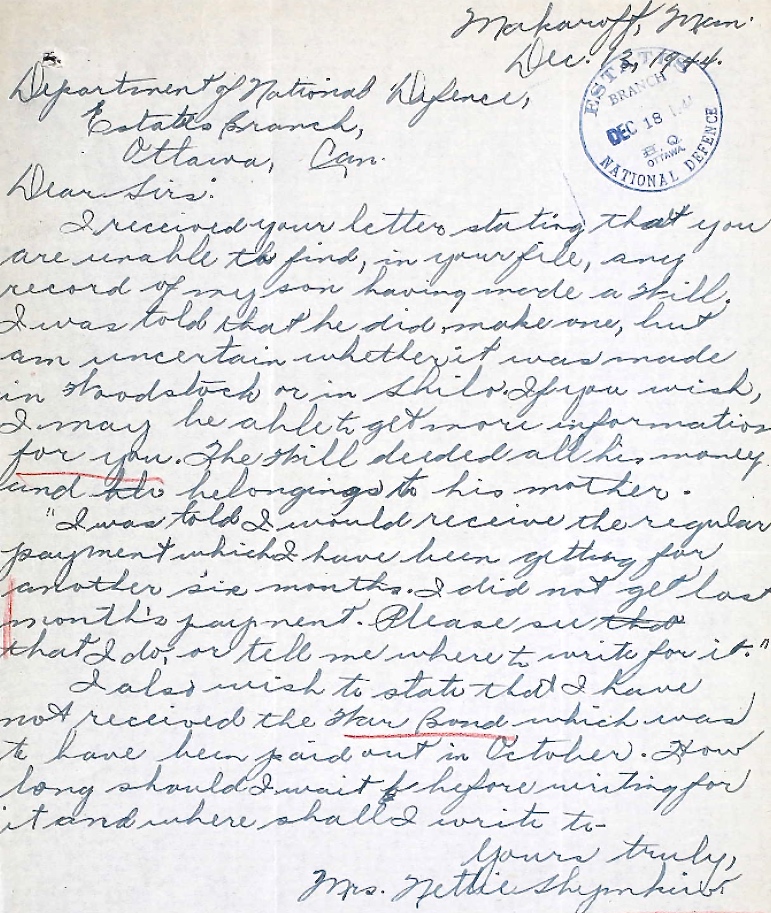 Makaroff, Man.
Dec. 13, 1944.
ESTATES
BRANCH
DEC 18
H.Q.
OTTAWA
NATIONAL DEFENCE
Department of National Defence,
Estates Branch,
Ottawa, Can.
Dear Sirs:
I received your letter stating that you
are unable to find, in your file, any
record of my son having made a Will.
I was told that he did make one, but
am uncertain whether it was made
in Woodstock or in Shilo. If you wish,
I may be able to get more information
for you. The Will deeded all his money
and his belongings to his mother.
"I was told I would receive the regular
payment which I have been getting for
another six months. I did not get last
month's payment. Please see that
that I do, or tell me where to write for it."
I also wish to state that I have
not received the War Bond which was
to have been paid out in October. How
long should I wait before writing for
it and where shall I write to-
Yours truly,
Mrs. Nettie